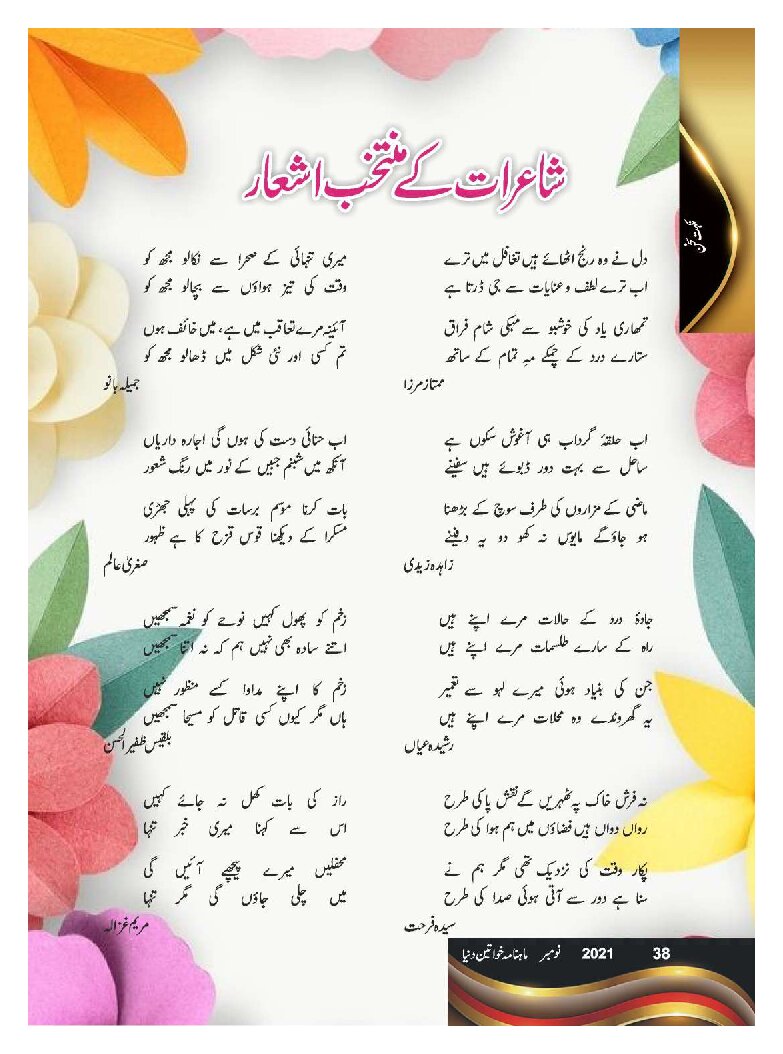 شاعرات کے منتخب اشعار
دل نے وہ رنج اٹھائے ہیں تغافل میں ترے
اب ترے لطف و عنایات سے جی ڈرتا ہے
تمھاری یاد کی خوشبو سے مہکی شام فراق
ستارے درد کے چمکے مہِ تمام کے ساتھ
ممتاز مرزا
اب حلقۂ گرداب ہی آغوش سکوں ہے
ساحل سے بہت دور ڈبوئے ہیں سفینے
ماضی کے مزاروں کی طرف سوچ کے بڑھنا
ہو جاؤگے مایوس نہ کھو دو یہ دفینے
زاہدہ زیدی
جادۂ درد کے حالات مرے اپنے ہیں
راہ کے سارے طلسمات مرے اپنے ہیں
جن کی بنیاد ہوئی میرے لہو سے تعمیر
یہ گھروندے وہ محلات مرے اپنے ہیں
رشیدہ عیاں
نہ فرش خاک پہ ٹھہریں گے نقش پا کی طرح
رواں دواں ہیں فضاؤں میں ہم ہوا کی طرح
پکار وقت کی نزدیک تھی مگر ہم نے
سنا ہے دور سے آتی ہوئی صدا کی طرح
سیدہ فرحت
میری تنہائی کے صحرا سے نکالو مجھ کو
وقت کی تیز ہواؤں سے بچالو مجھ کو
آئینہ مرے تعاقب میں ہے، میں خائف ہوں
تم کسی اور نئی شکل میں ڈھالو مجھ کو
جمیلہ بانو
اب حنائی دست کی ہوں گی اجارہ داریاں
آنکھ میں شبنم جبیں کے نور میں رنگ شعور
بات کرنا موسم برسات کی پہلی جھڑی
مسکرا کے دیکھنا قوس قزح کا ہے ظہور
صغریٰ عالم
زخم کو پھول کہیں نوحے کو نغمہ سمجھیں
اتنے سادہ بھی نہیں ہم کہ نہ اتنا سمجھیں
زخم کا اپنے مداوا کسے منظور نہیں
ہاں مگر کیوں کسی قاتل کو مسیحا سمجھیں
بلقیس ظفیر الحسن
راز کی بات کھل نہ جائے کہیں
اس سے کہنا میری خبر تنہا
محفلیں میرے پیچھے آئیں گی
میں چلی جاؤں گی مگر تنہا
مریم غزالہ
38 2021 نومبر ماہنامہ خواتین دنیا